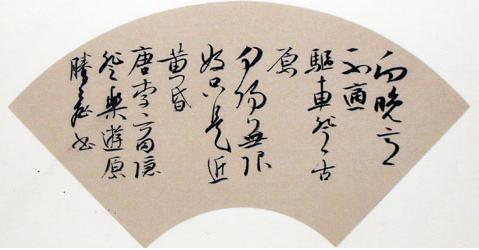 向晚意
不適
驅車登古
原
夕陽無限
好只是近
黄昏
唐李商隱
登樂遊原
书